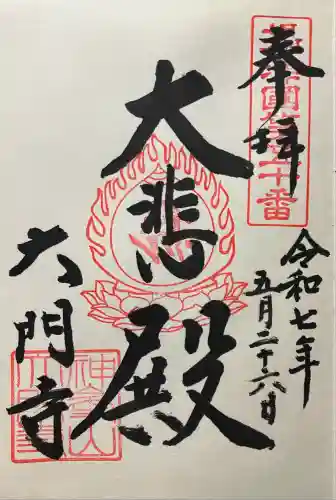 奉拝
令和七年
五月二十六日
大悲殿
六門寺